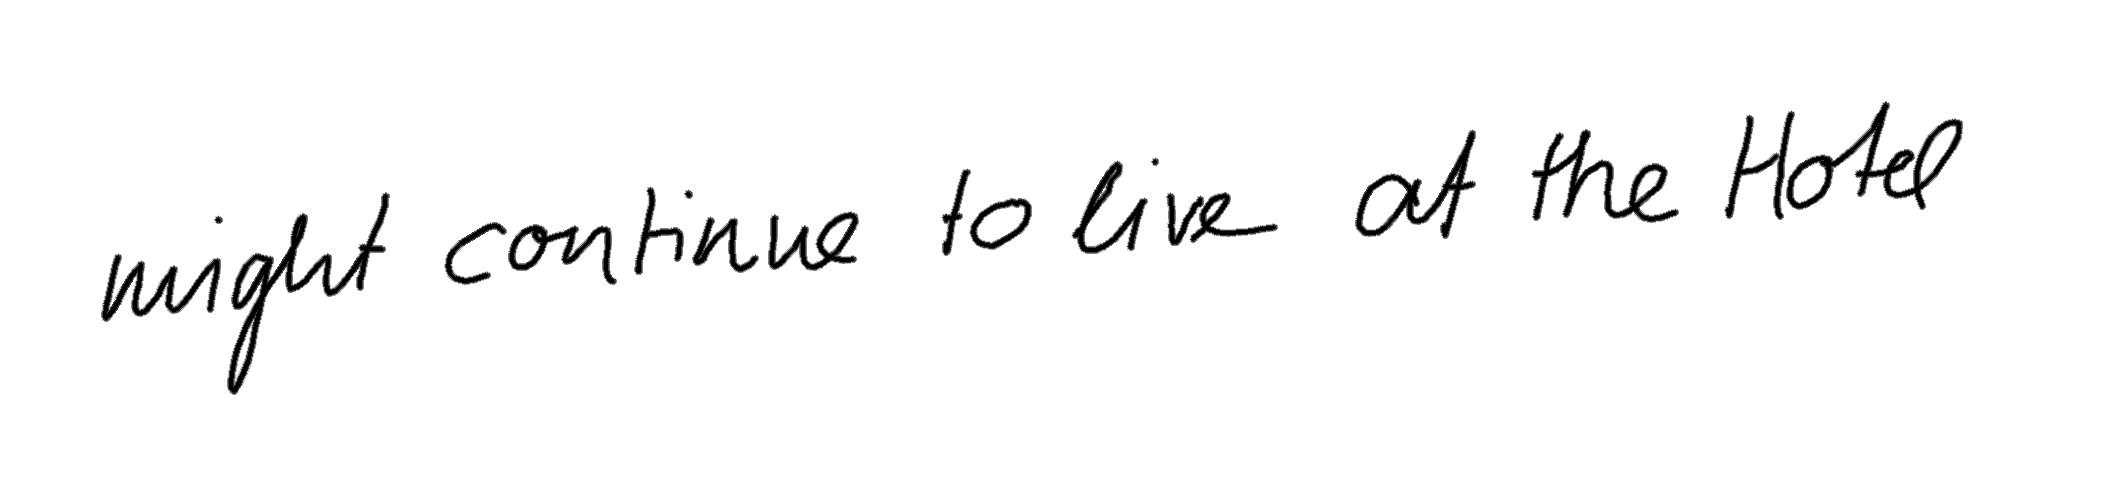 might continue to live at the Hotel